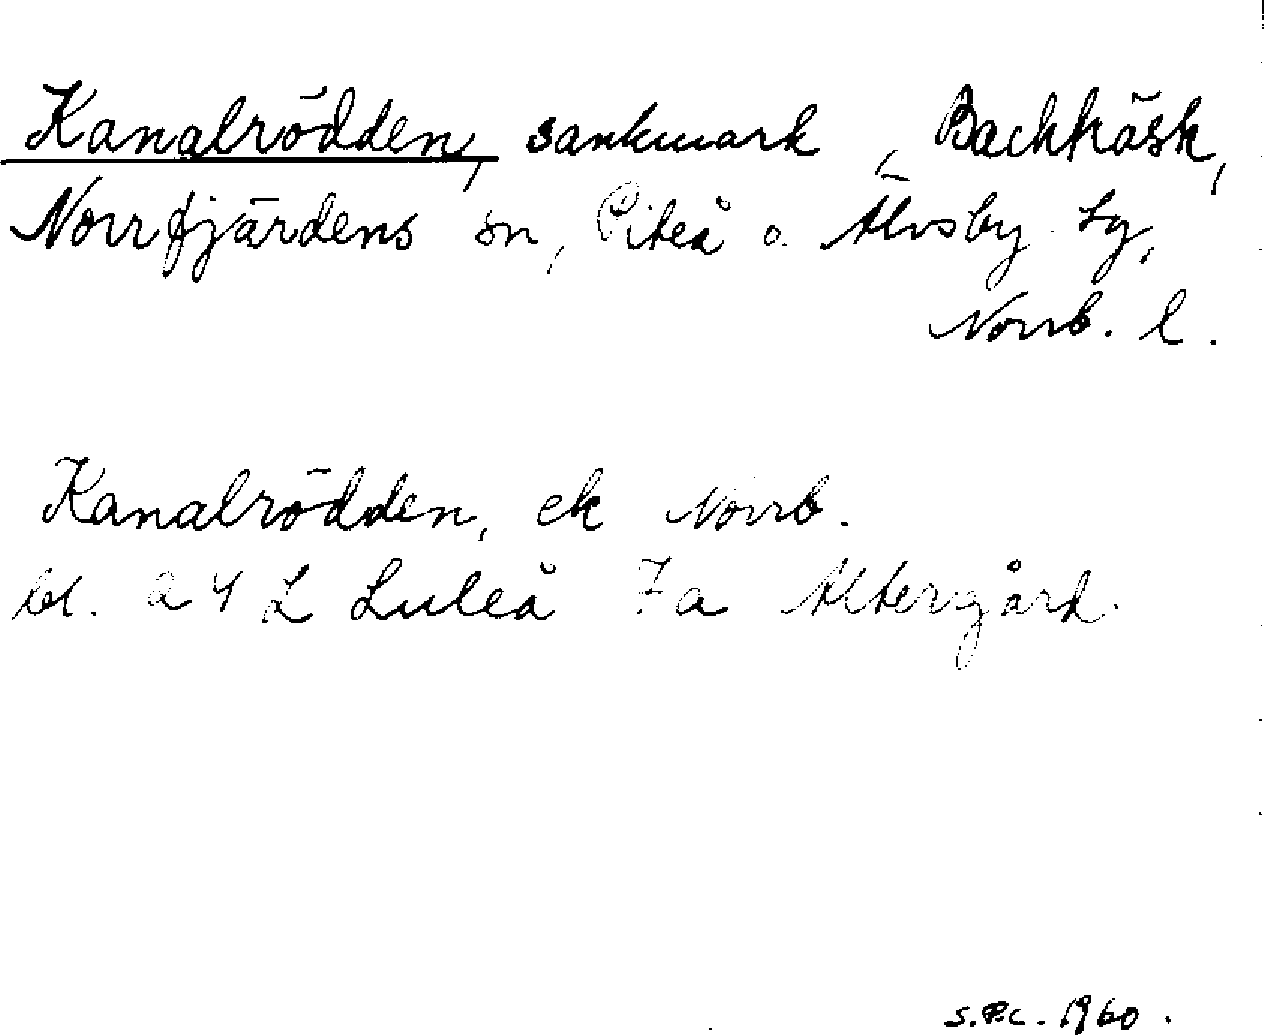 Kanalrödden, sankmark, Backträsk,
Norrfjärdens sn, Piteå o. Älvsby tg,
Norrb. l.
Kanalrödden, ek Norrb.
bl. a 4 L Luleå 7a Altergård.
S.P.C. 1960.